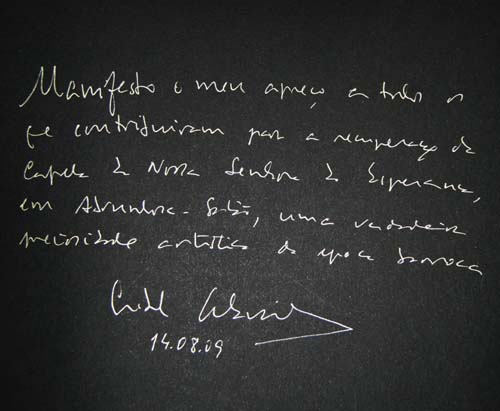 Manifesto o meu apreço a todos os
que contribuiram para a recuperação da
Capela de Nossa Senhora da Esperança,
em Abrunhosa - Satão, uma verdadeira
preciosidade artística da época barroca
14.08.09